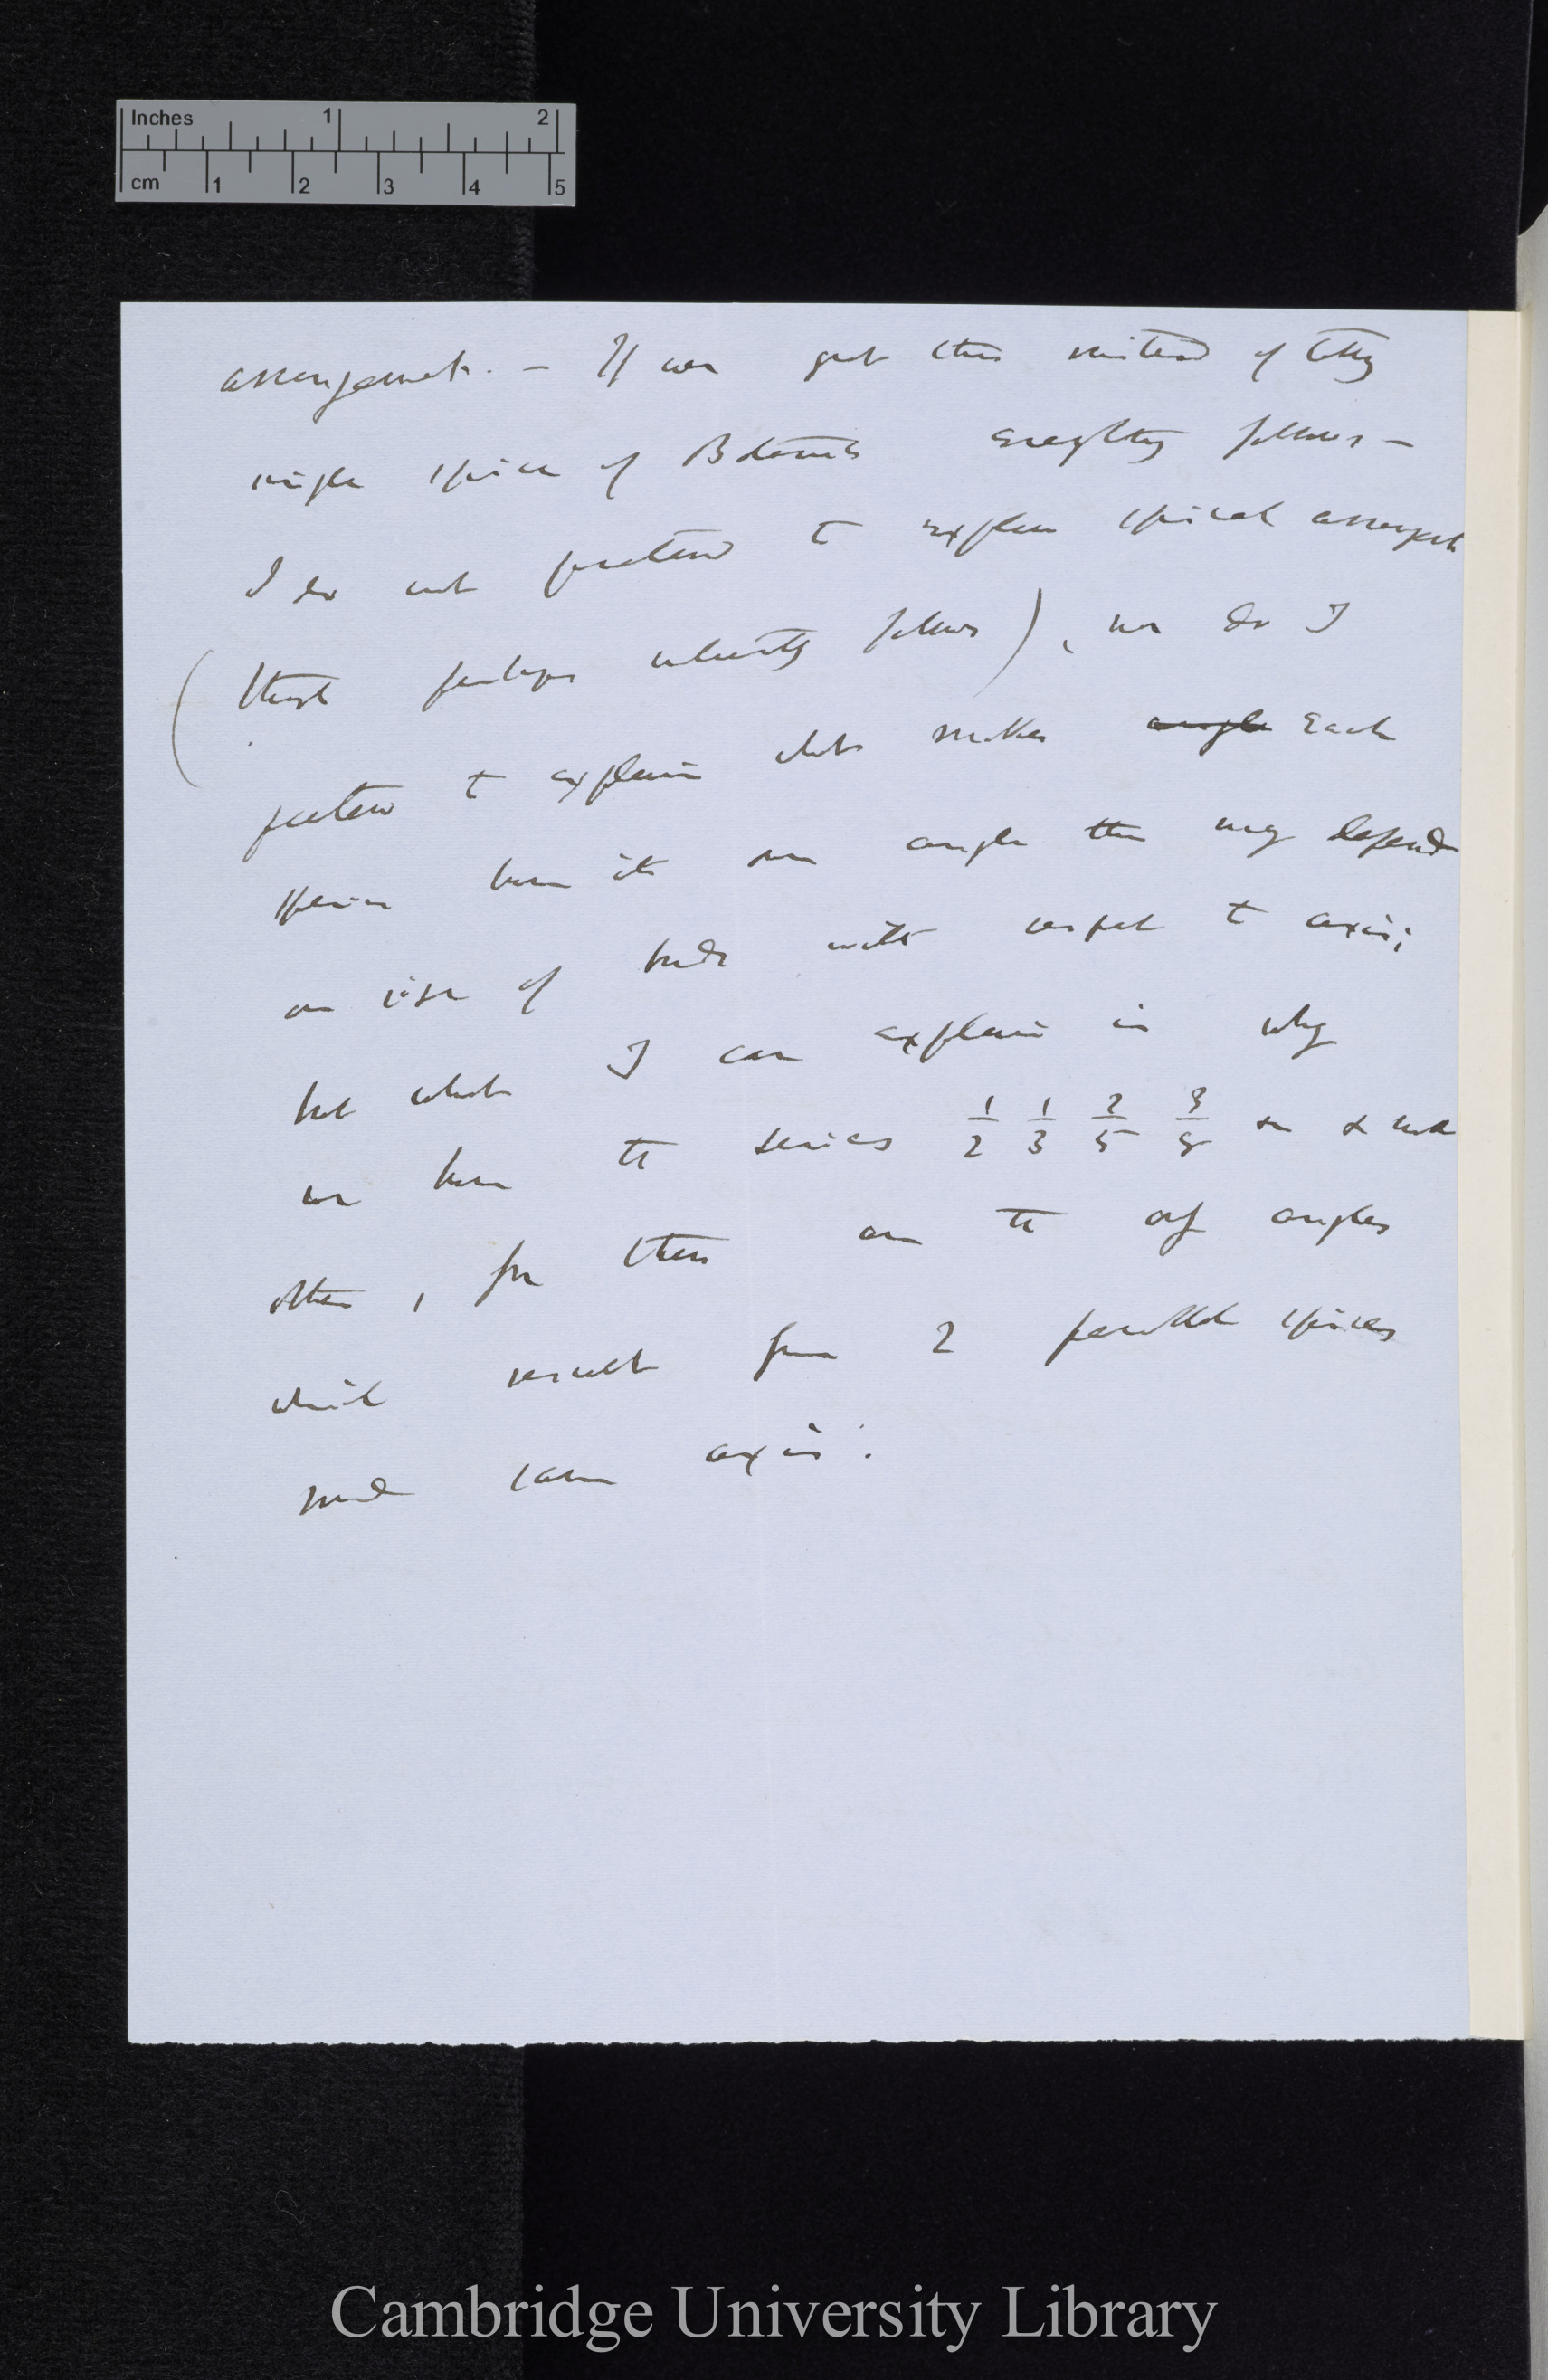 Inches 1 2
cm 1 2 3 4 5
arrangement. — If we get this instead of
single spire of Botanists everything follows —
I do not pretend to explain spiral arrangt
(though perhaps inherently follows), nor do I
pretend to explain what makes angle each
species have its own angle this may depend
on size of buds with respect to axis;
but what I can explain is why
we have the series 1/2 1/3 2/5 3/8 &c & not
others, for these are the only angles
which result from 2 parallel spires
round same axis.
Cambridge University Library